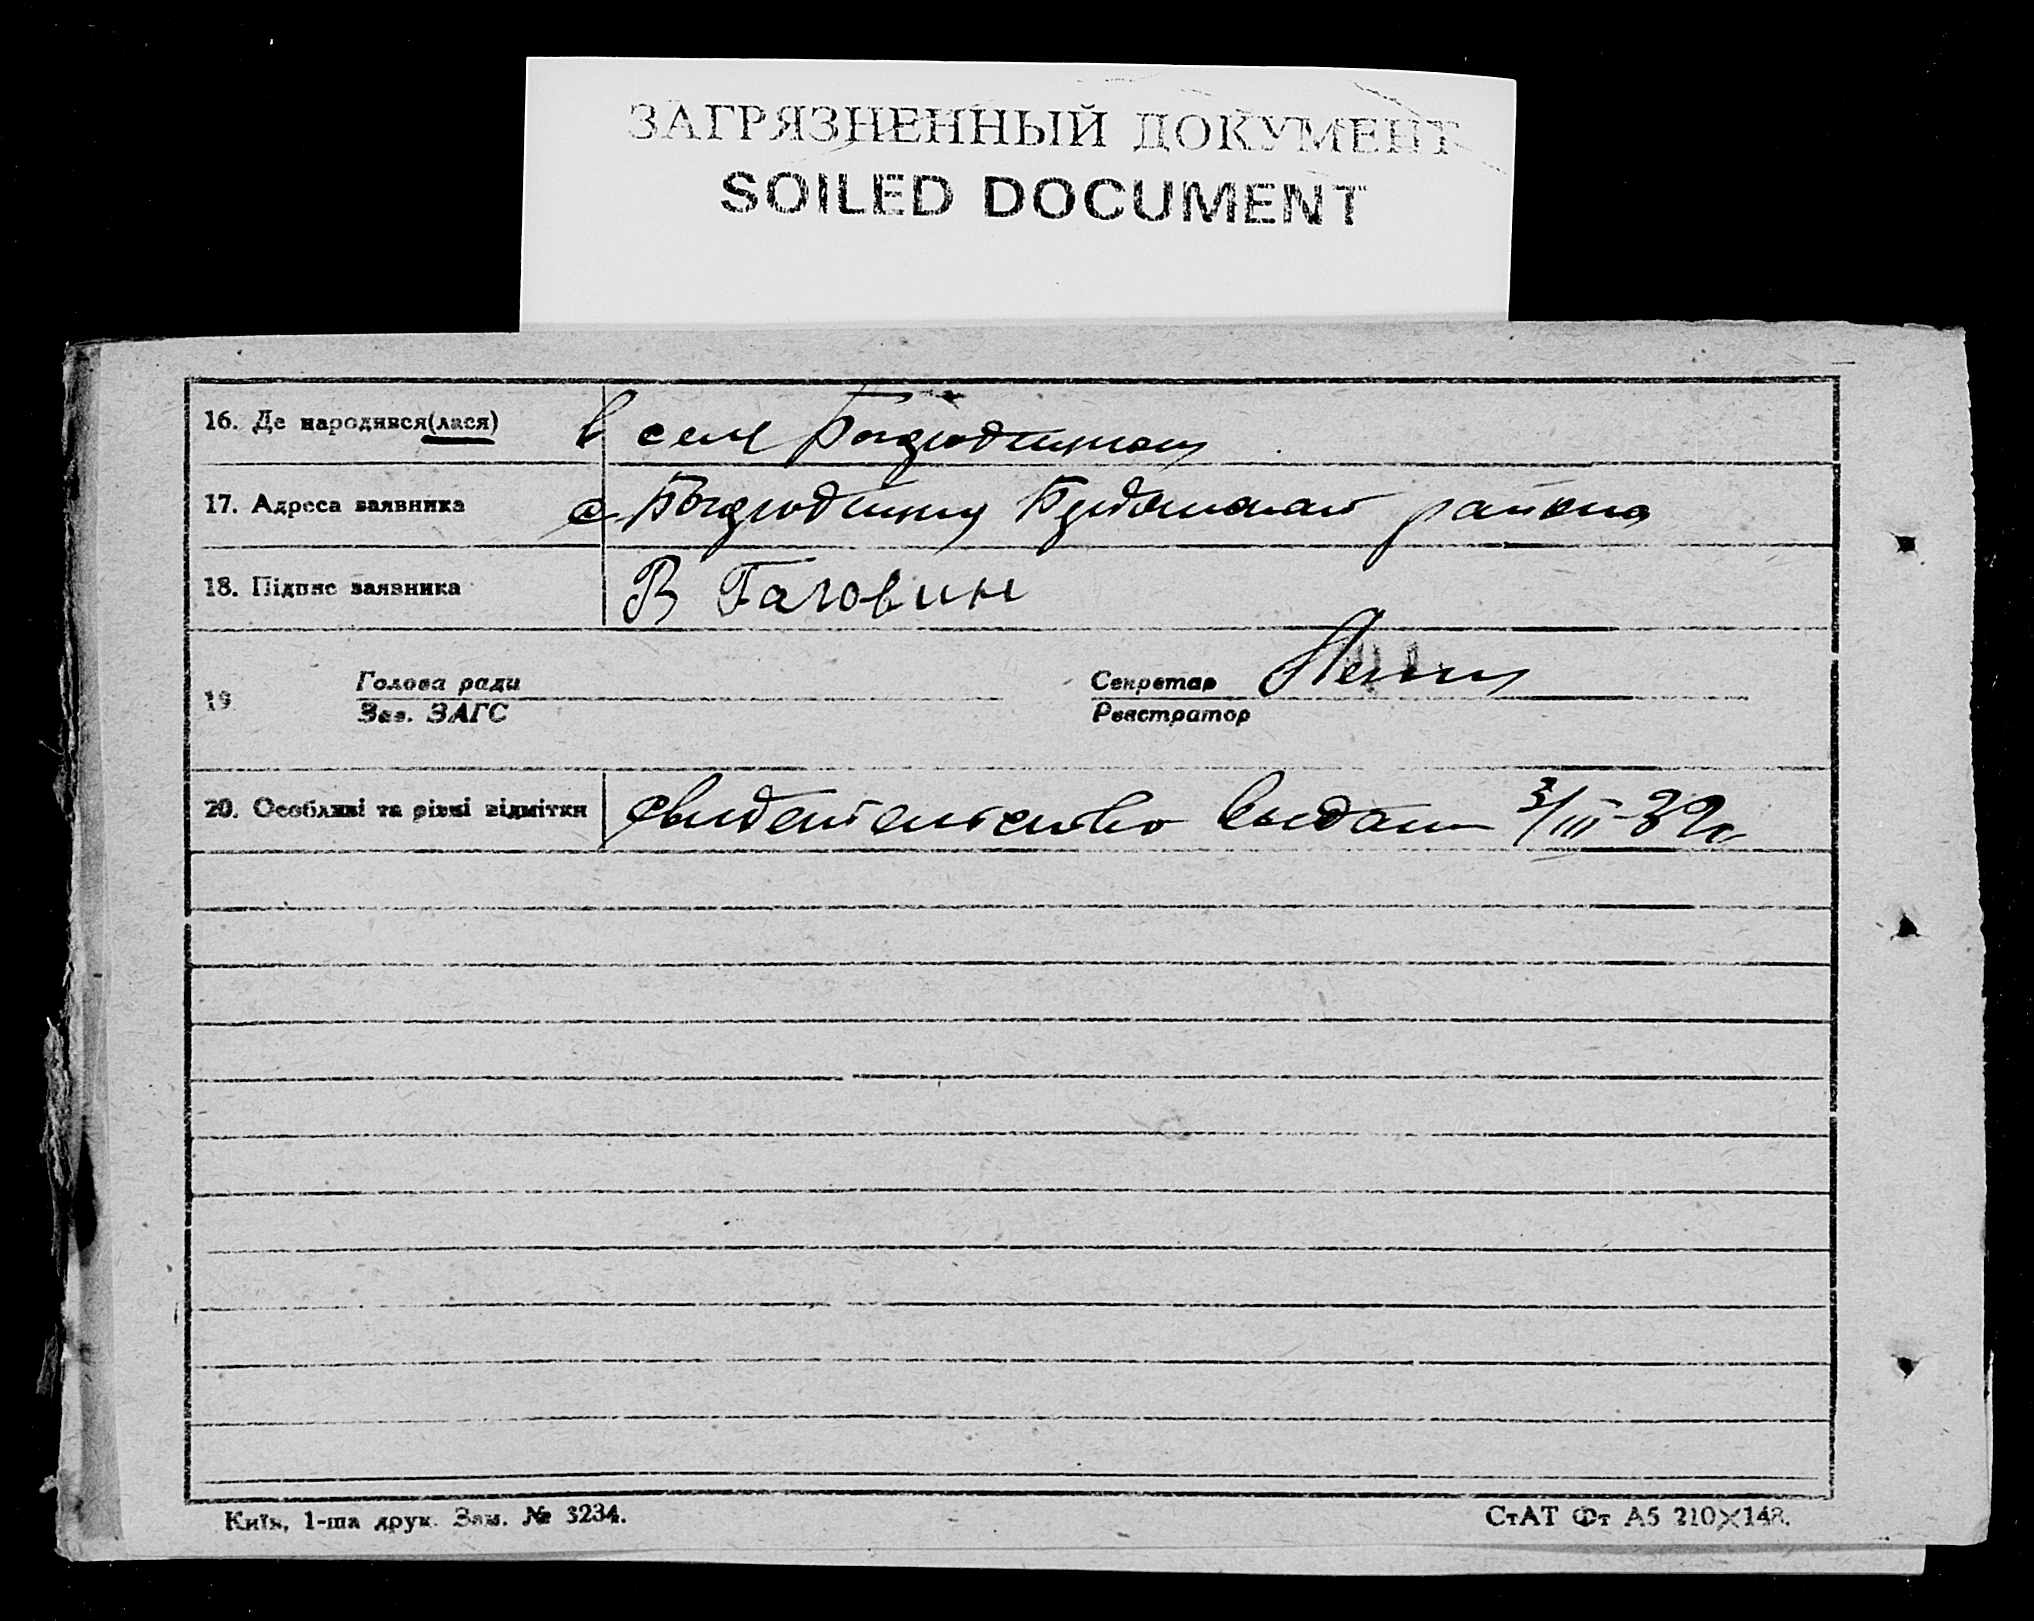 ЗАГРЯЗНЕННЫЙ ДОКУМЕНТ
SOILED DOCUMENT
16. Де народився(лася) в селе
17. Адреса заявника с района
18. Підпис заявника В Гаговин
19 Голова ради Секретар
Зав. ЗАГС Реєстратор
20. Особливі та різні відмітки свидетельство выдано 3/III-32г
Київ, 1-ша друк. Зам. № 3234. СтАТ Фт А5 210×148.